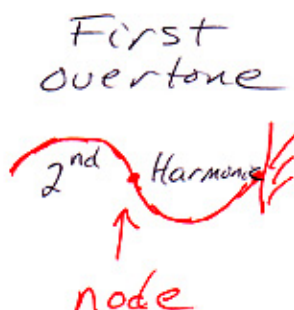 First
overtone
2nd Harmonic
node